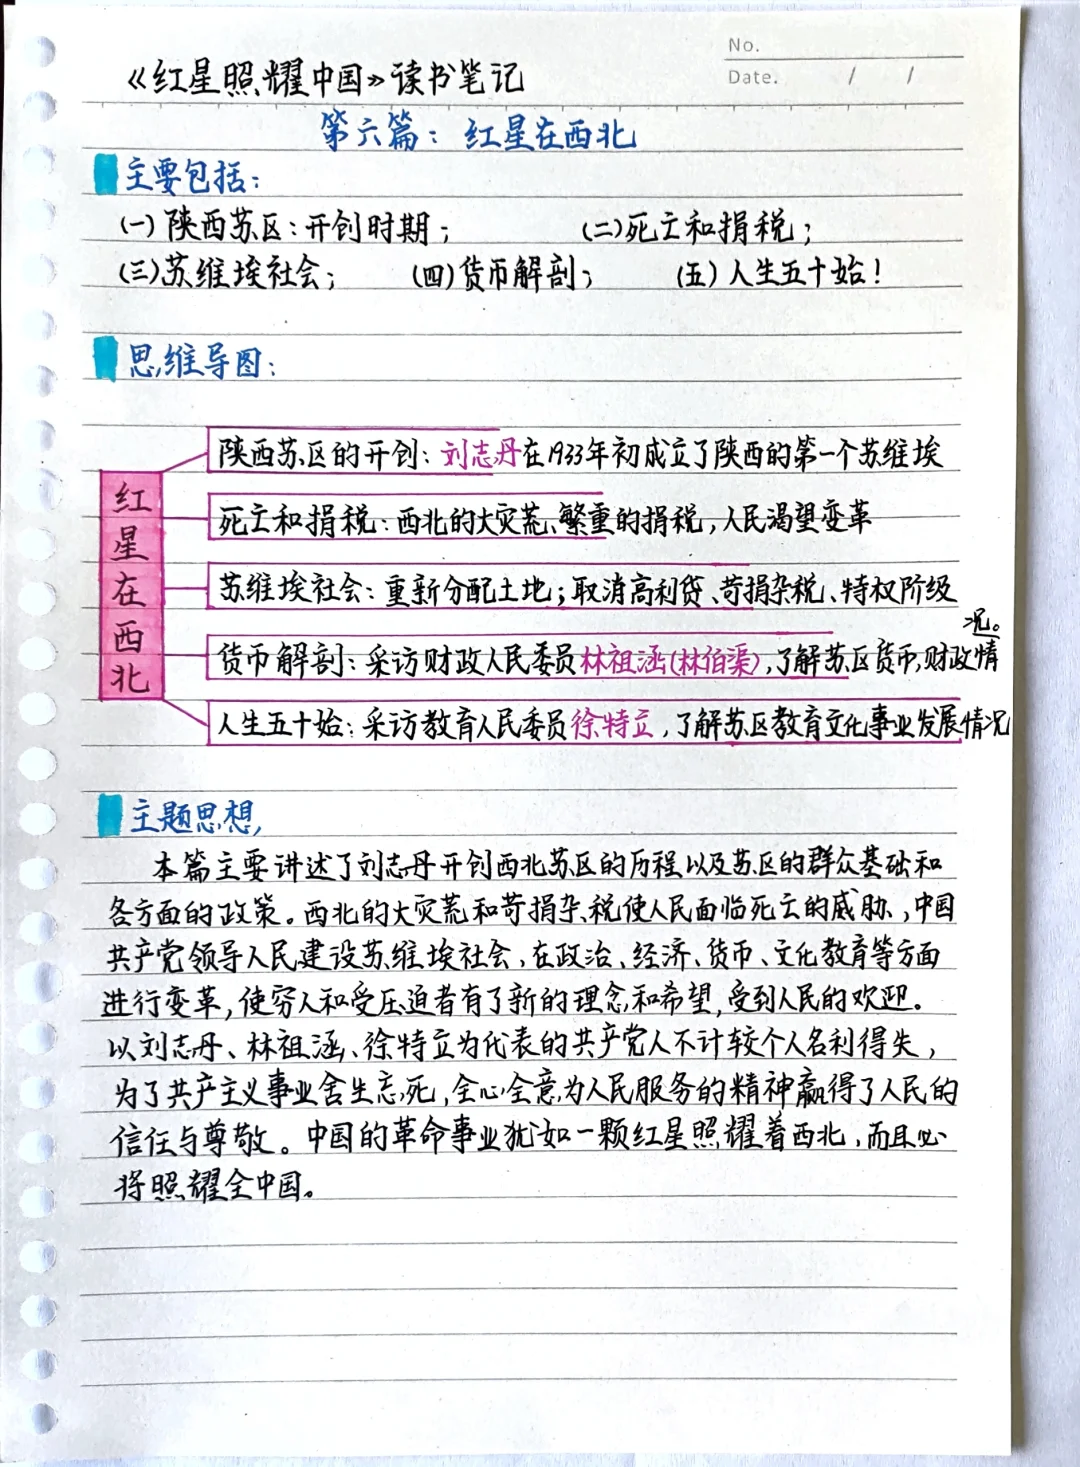 No.
Date. / /
《红星照耀中国》读书笔记
第六篇：红星在西北
主要包括：
(一)陕西苏区：开创时期； (二)死亡和捐税；
(三)苏维埃社会； (四)货币解剖； (五)人生五十始！
思维导图：
红星在西北
陕西苏区的开创：刘志丹在1933年初成立了陕西的第一个苏维埃
死亡和捐税：西北的大灾荒、繁重的捐税，人民渴望变革
苏维埃社会：重新分配土地；取消高利贷、苛捐杂税、特权阶级
货币解剖：采访财政人民委员林祖涵(林伯渠)，了解苏区货币，财政情况。
人生五十始：采访教育人民委员徐特立，了解苏区教育文化事业发展情况
主题思想，
本篇主要讲述了刘志丹开创西北苏区的历程以及苏区的群众基础和
各方面的政策。西北的大灾荒和苛捐杂税使人民面临死亡的威胁，中国
共产党领导人民建设苏维埃社会，在政治、经济、货币、文化教育等方面
进行变革，使穷人和受压迫者有了新的理念和希望，受到人民的欢迎。
以刘志丹、林祖涵、徐特立为代表的共产党人不计较个人名利得失，
为了共产主义事业舍生忘死，全心全意为人民服务的精神赢得了人民的
信任与尊敬。中国的革命事业犹如一颗红星照耀着西北，而且必
将照耀全中国。